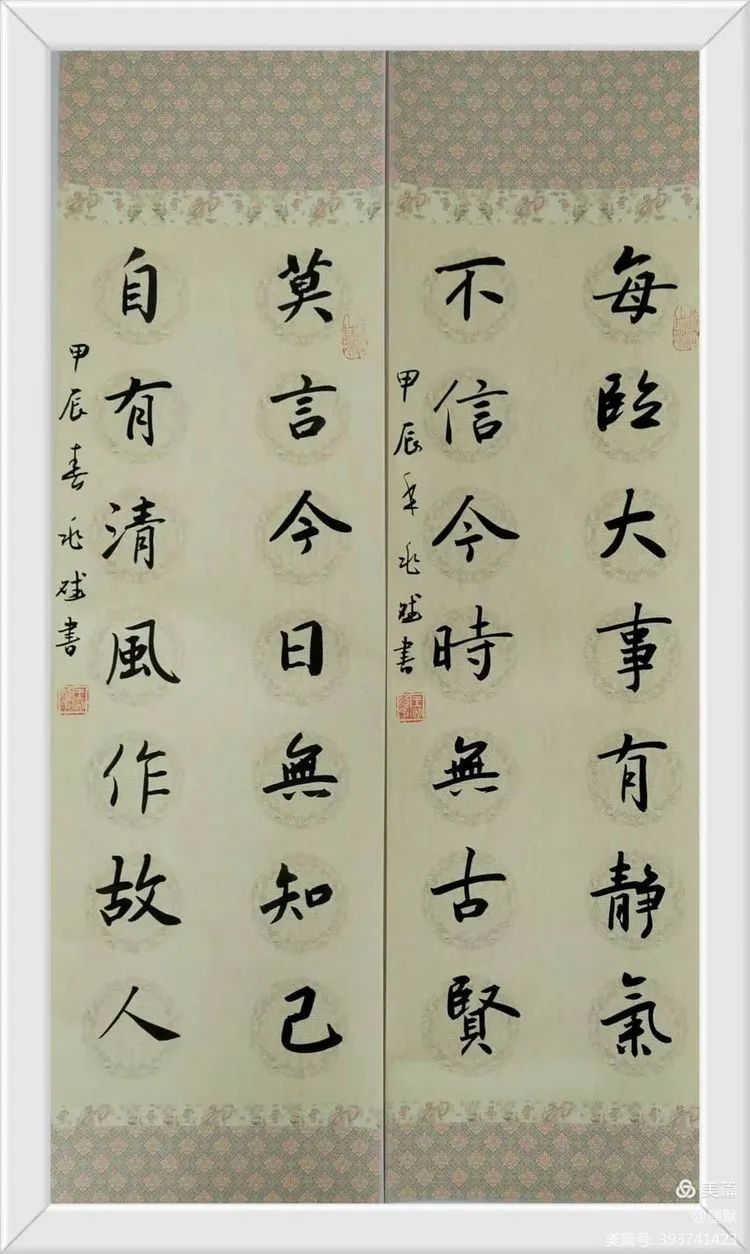 每臨大事有静氣
不信今時無古賢
甲辰年兆斌書
莫言今日無知己
自有清風作故人
甲辰春兆斌書
美篇
@幽默
美篇号:393741423